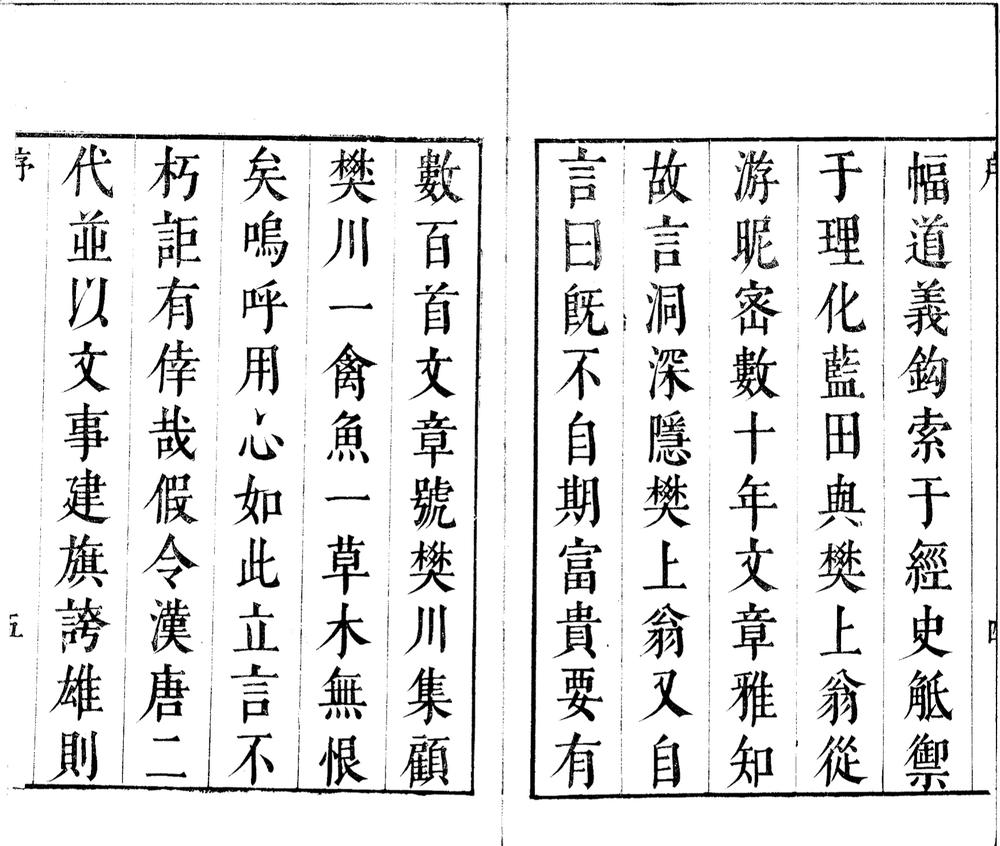 幅道義鈎索于經史觝禦
于理化藍田與樊上翁從
游昵密數十年文章雅知
故言洞深隱樊上翁又自
言曰旣不自期富貴要有
數百首文章號樊川集顧
樊川一禽魚一草木無恨
矣嗚呼用心如此立言不
朽詎有倖哉假令漢唐二
代並以文事建旗誇雄則
序
五